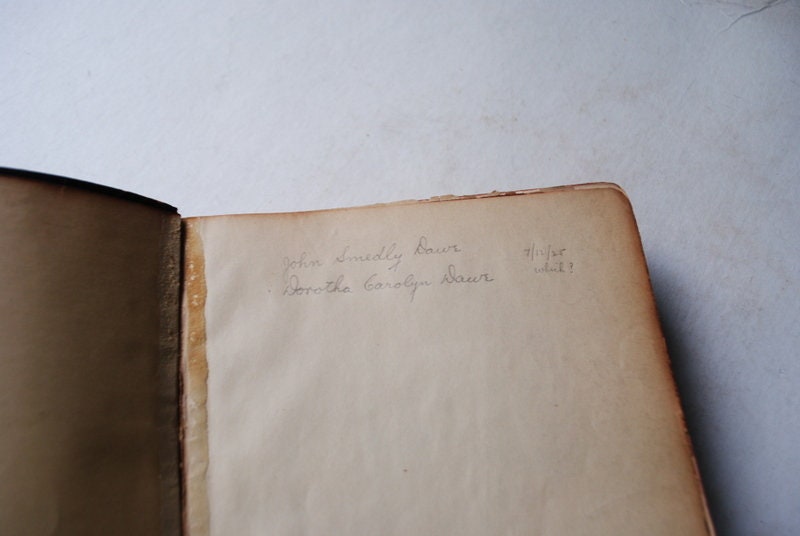 John Smedly Dawe
Dorotha Carolyn Dawe
7/12/25
which?